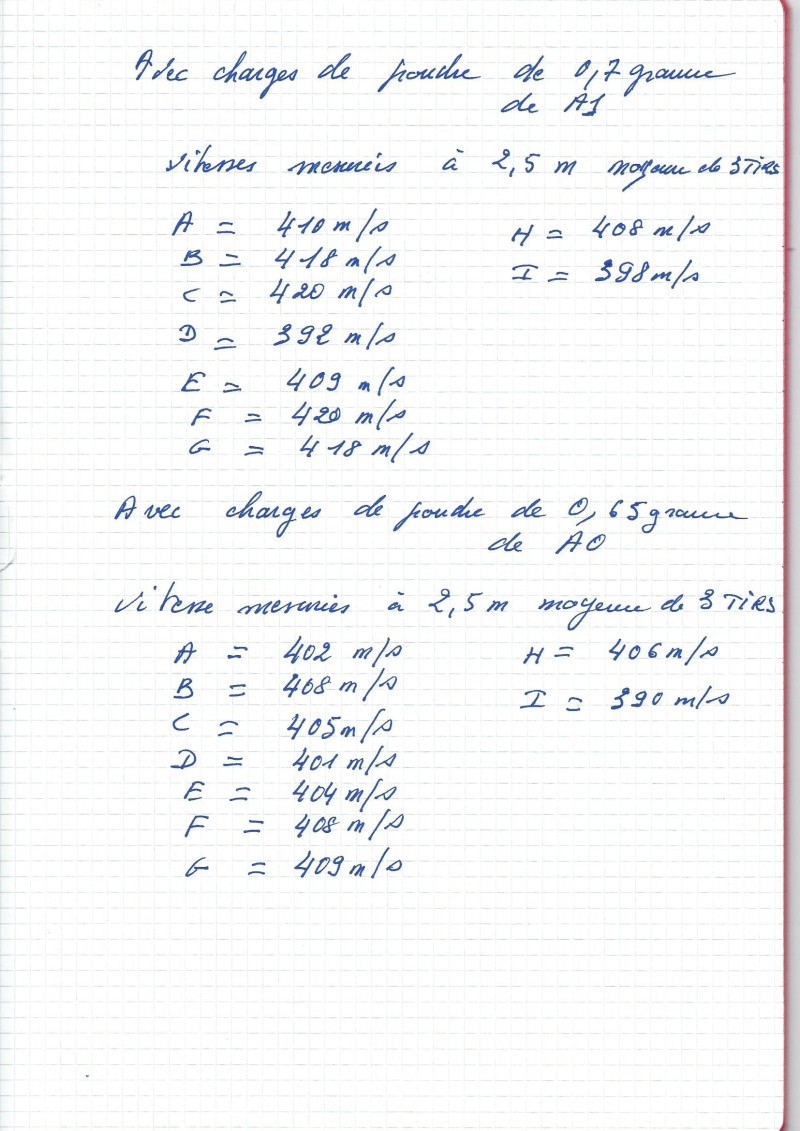 Avec charges de poudre de 0,7 gramme
de A1
Vitesses mesurées à 2,5 m moyenne de 3 TIRS
A = 410 m/s
B = 418 m/s
C = 420 m/s
D = 392 m/s
E = 409 m/s
F = 420 m/s
G = 418 m/s
H = 408 m/s
I = 398 m/s
Avec charges de poudre de 0,65 gramme
de A0
Vitesse mesurées à 2,5 m moyenne de 3 TIRS
A = 402 m/s
B = 408 m/s
C = 405 m/s
D = 401 m/s
E = 404 m/s
F = 408 m/s
G = 409 m/s
H = 406 m/s
I = 390 m/s